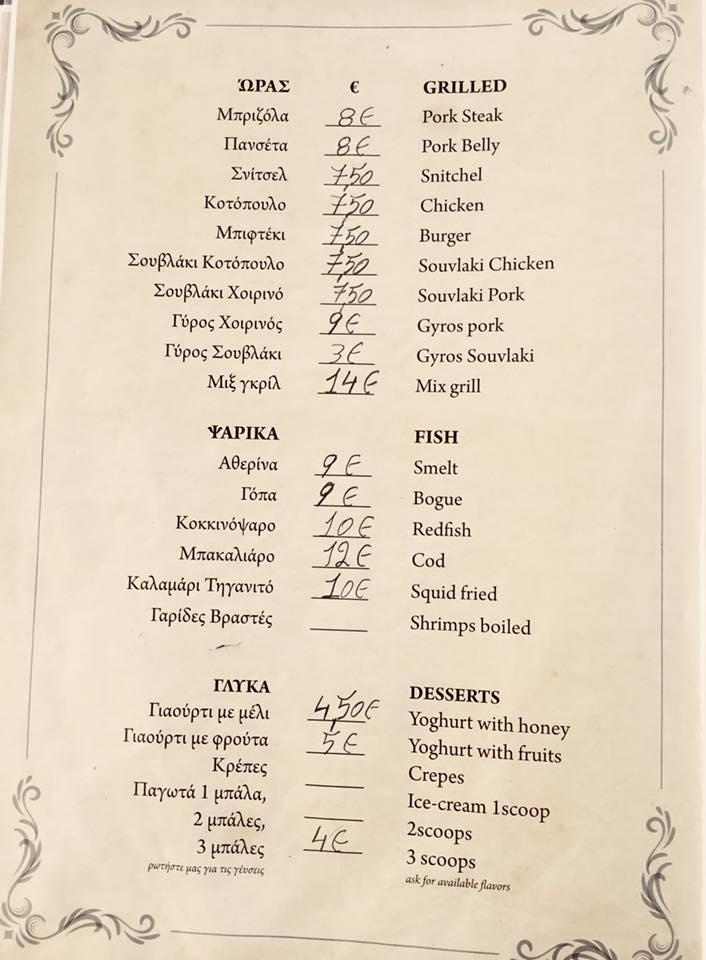 ΏΡΑΣ € GRILLED
Μπριζόλα 8€ Pork Steak
Πανσέτα 8€ Pork Belly
Σνίτσελ 7,50 Snitchel
Κοτόπουλο 7,50 Chicken
Μπιφτέκι 7,50 Burger
Σουβλάκι Κοτόπουλο 7,50 Souvlaki Chicken
Σουβλάκι Χοιρινό 7,50 Souvlaki Pork
Γύρος Χοιρινός 9€ Gyros pork
Γύρος Σουβλάκι 3€ Gyros Souvlaki
Μιξ γκρίλ 14€ Mix grill
ΨΑΡΙΚΑ FISH
Αθερίνα 9€ Smelt
Γόπα 9€ Bogue
Κοκκινόψαρο 10€ Redfish
Μπακαλιάρο 12€ Cod
Καλαμάρι Τηγανιτό 10€ Squid fried
Γαρίδες Βραστές Shrimps boiled
ΓΛΥΚΑ DESSERTS
Γιαούρτι με μέλι 4,50€ Yoghurt with honey
Γιαούρτι με φρούτα 5€ Yoghurt with fruits
Κρέπες Crepes
Παγωτά 1 μπάλα, Ice-cream 1scoop
2 μπάλες, 2scoops
3 μπάλες 4€ 3 scoops
ρωτήστε μας για τις γεύσεις ask for available flavors